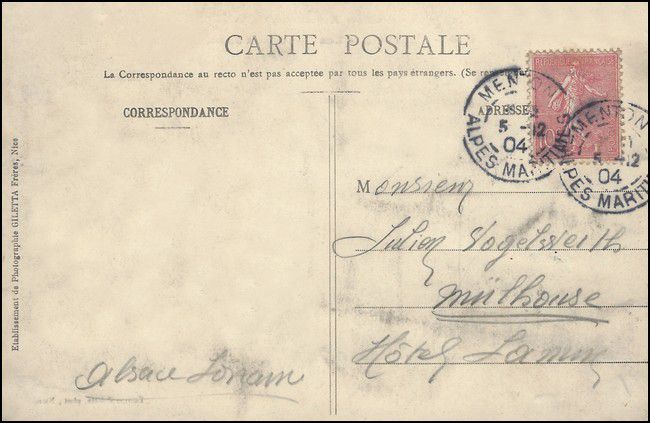 CARTE POSTALE
La Correspondance au recto n'est pas acceptée par tous les pays étrangers. (Se
CORRESPONDANCE
ADRESSE
RÉPUBLIQUE FRANÇAISE
MENTON
5 -12
04
ALPES MARITIMES
MENTON
5 -12
04
ALPES MARIT
Monsieur
Julien Vogelsweith
Mülhouse
Hôtel
Alsace Lorrain
Etablissement de Photographie GILETTA Frères, Nice